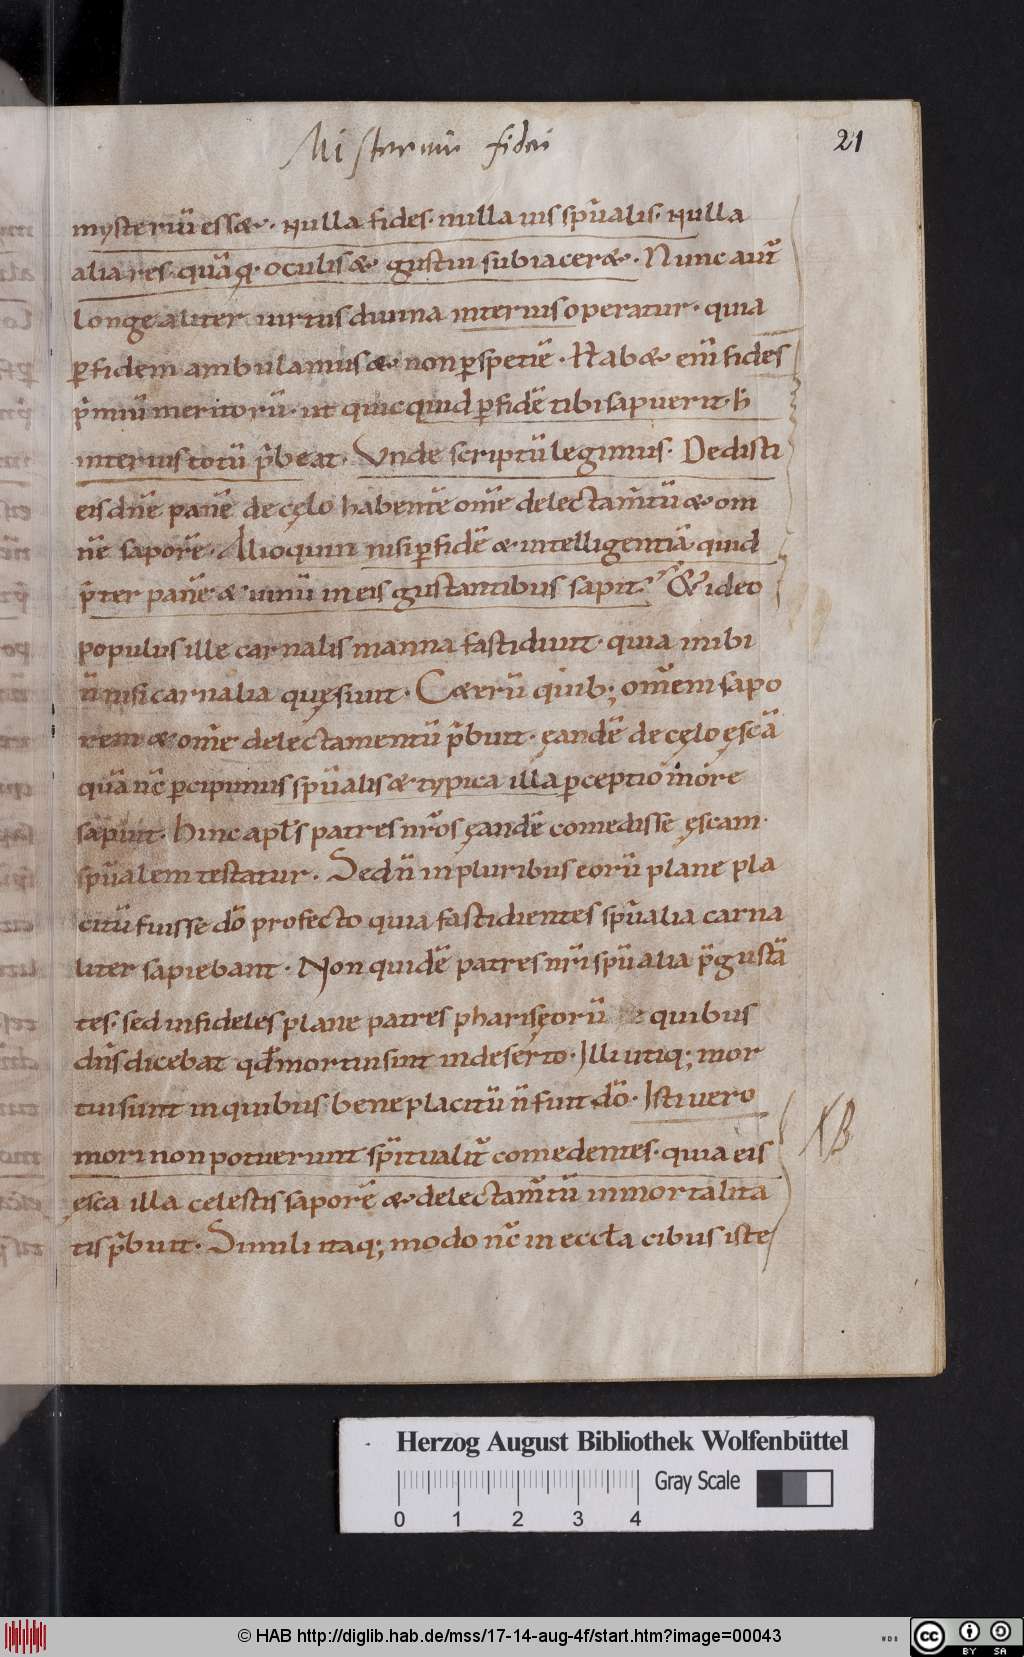 Misterium fidei
21
mysteriū essæ · nulla fides · nulla uis sp̄ualis · nulla
alia res · quā q̨ · oculis æ gustui subiaceræ · Nunc aut̄
longe aliter uirtus diuina interius operatur · quia
p̱ fidem ambulamus æ non p̱ spetiē · Habæ eni̅ fides
p̄miū meritorū · ut quicquid p̱ fidē tibi sapuerit · h̄
interius totū p̄beat · Vnde scriptū legimus · Dedisti
eis dn̄e panē de cęlo habentē om̄e delectam̄tū æ om
nē saporē · Alioquin nisi p̱ fidē æ intelligentiā quid
p̄ter panē æ uinū in eis gustantibus sapit? & ideo
populus ille carnalis manna fastidiuit · quia inibi
n̄ nisi carnalia quęsiuit · Cæterū quib; om̄em sapo
rem æ om̄e delectamentū p̄buit · ęandē de cęlo ęscā
quā nc̄ p̱cipimus sp̄ualis æ typica illa p̱ceptio in ore
sapuit · hinc apl̄s patres nr̄os ęandē comedisse ęscam ·
sp̄ualem testatur · Sed n̄ in pluribus eorū plane pla
citū fuisse dō profecto quia fastidientes sp̄ualia carna
liter sapiebant · Non quidē patres nr̄i sp̄ualia p̄gustā
tes · sed infideles plane patres pharisęorū de quibus
dn̄s dicebat qđ mortui sunt in deserto · Illi utiq; mor
tui sunt in quibus bene placitū n̄ fuit dō · Isti uero
mori non potuerunt sp̄itualit̄ comedentes · quia eis
ęsca illa celestis saporē æ delectam̄tū inmortalita
tis p̄buit · Simili itaq; modo nc̄ in eccl̄a cibus iste
NB
Herzog August Bibliothek Wolfenbüttel
Gray Scale
0 1 2 3 4
© HAB http://diglib.hab.de/mss/17-14-aug-4f/start.htm?image=00043
WDB
cc BY SA